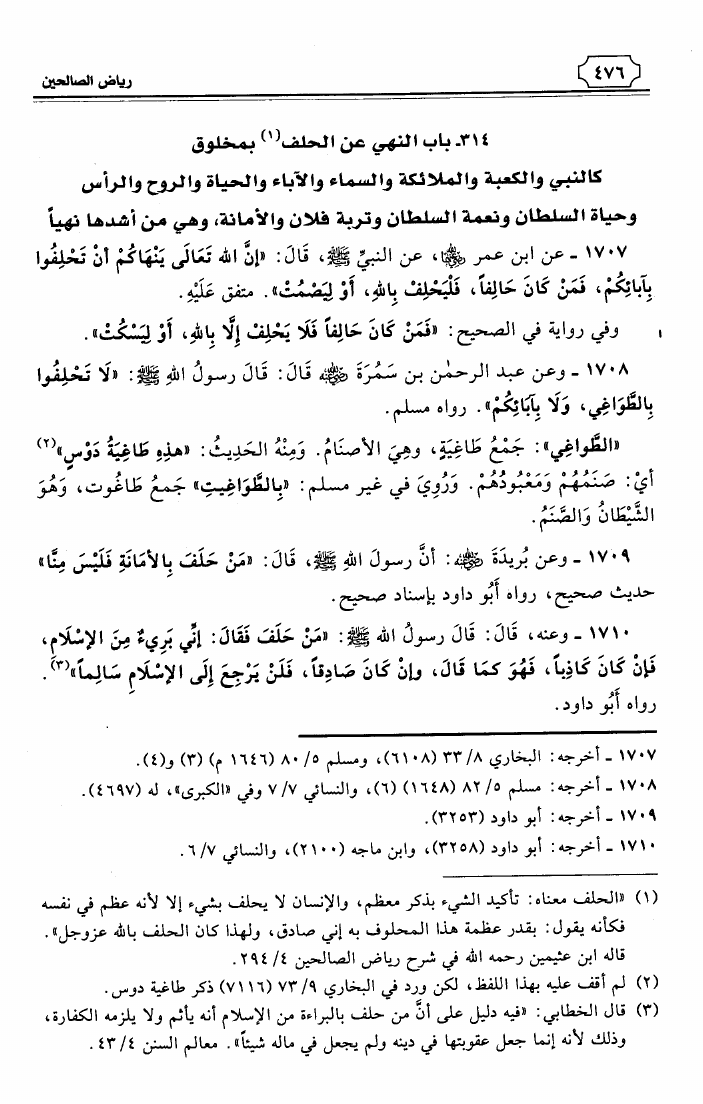 ٤٧٦
رياض الصالحين
٣١٤ـ باب النهي عن الحلف(١) بمخلوق
كالنبي والكعبة والملائكة والسماء والآباء والحياة والروح والرأس
وحياة السلطان ونعمة السلطان وتربة فلان والأمانة، وهي من أشدها نهياً
١٧٠٧ ـ عن ابن عمر ﵄، عن النبيِّ ﷺ، قَالَ: «إنَّ الله تَعَالَى يَنْهَاكُمْ أنْ تَحْلِفُوا
بِآبائِكُمْ، فَمَنْ كَانَ حَالِفاً، فَلْيَحْلِف بِاللهِ، أوْ لِيَصْمُتْ». متفق عَلَيْهِ.
وفي رواية في الصحيح: «فَمَنْ كَانَ حَالِفاً فَلَا يَحْلِفْ إلَّا بِاللهِ، أوْ لِيَسْكُتْ».
١٧٠٨ ـ وعن عبد الرحمٰن بن سَمُرَةَ ﵁ قَالَ: قَالَ رسولُ اللهِ ﷺ: «لَا تَحْلِفُوا
بِالطَّوَاغِي، وَلَا بِآبَائِكُمْ». رواه مسلم.
«الطَّواغِي»: جَمْعُ طَاغِيَةٍ، وهِيَ الأصنَامُ. وَمِنْهُ الحَدِيثُ: «هذِهِ طَاغِيَةُ دَوْسٍ»(٢)
أيْ: صَنَمُهُمْ وَمَعْبُودُهُمْ. وَرُوِيَ في غير مسلم: «بِالطَّوَاغِيتِ» جَمعُ طَاغُوت، وَهُوَ
الشَّيْطَانُ وَالصَّنَمُ.
١٧٠٩ ـ وعن بُرِيدَةَ ﵁: أنَّ رسولَ اللهِ ﷺ، قَالَ: «مَنْ حَلَفَ بِالأمَانَةِ فَلَيْسَ مِنَّا»
حديث صحيح، رواه أَبُو داود بإسناد صحيح.
١٧١٠ ـ وعنه، قَالَ: قَالَ رسولُ الله ﷺ: «مَنْ حَلَفَ فَقَالَ: إنِّي بَرِيءٌ مِنَ الإسْلَامِ،
فَإنْ كَانَ كَاذِباً، فَهُوَ كمَا قَالَ، وإنْ كَانَ صَادِقاً، فَلَنْ يَرْجِعَ إلَى الإسْلَامِ سَالِماً»(٣).
رواه أَبُو داود.
١٧٠٧ ـ أخرجه: البخاري ٣٣/٨ (٦١٠٨)، ومسلم ٨٠/٥ (١٦٤٦ م) (٣) و(٤).
١٧٠٨ ـ أخرجه: مسلم ٨٢/٥ (١٦٤٨) (٦)، والنسائي ٧/٧ وفي «الكبرى»، له (٤٦٩٧).
١٧٠٩ ـ أخرجه: أبو داود (٣٢٥٣).
١٧١٠ ـ أخرجه: أبو داود (٣٢٥٨)، وابن ماجه (٢١٠٠)، والنسائي ٦/٧.
(١) «الحلف معناه: تأكيد الشيء بذكر معظم، والإنسان لا يحلف بشيء إلا لأنه عظم في نفسه
فكأنه يقول: بقدر عظمة هذا المحلوف به إني صادق، ولهذا كان الحلف بالله عزوجل».
قاله ابن عثيمين رحمه الله في شرح رياض الصالحين ٢٩٤/٤.
(٢) لم أقف عليه بهذا اللفظ، لكن ورد في البخاري ٧٣/٩ (٧١١٦) ذكر طاغية دوس.
(٣) قال الخطابي: «فيه دليل على أنَّ من حلف بالبراءة من الإسلام أنه يأثم ولا يلزمه الكفارة،
وذلك لأنه إنما جعل عقوبتها في دينه ولم يجعل في ماله شيئاً». معالم السنن ٤٣/٤.